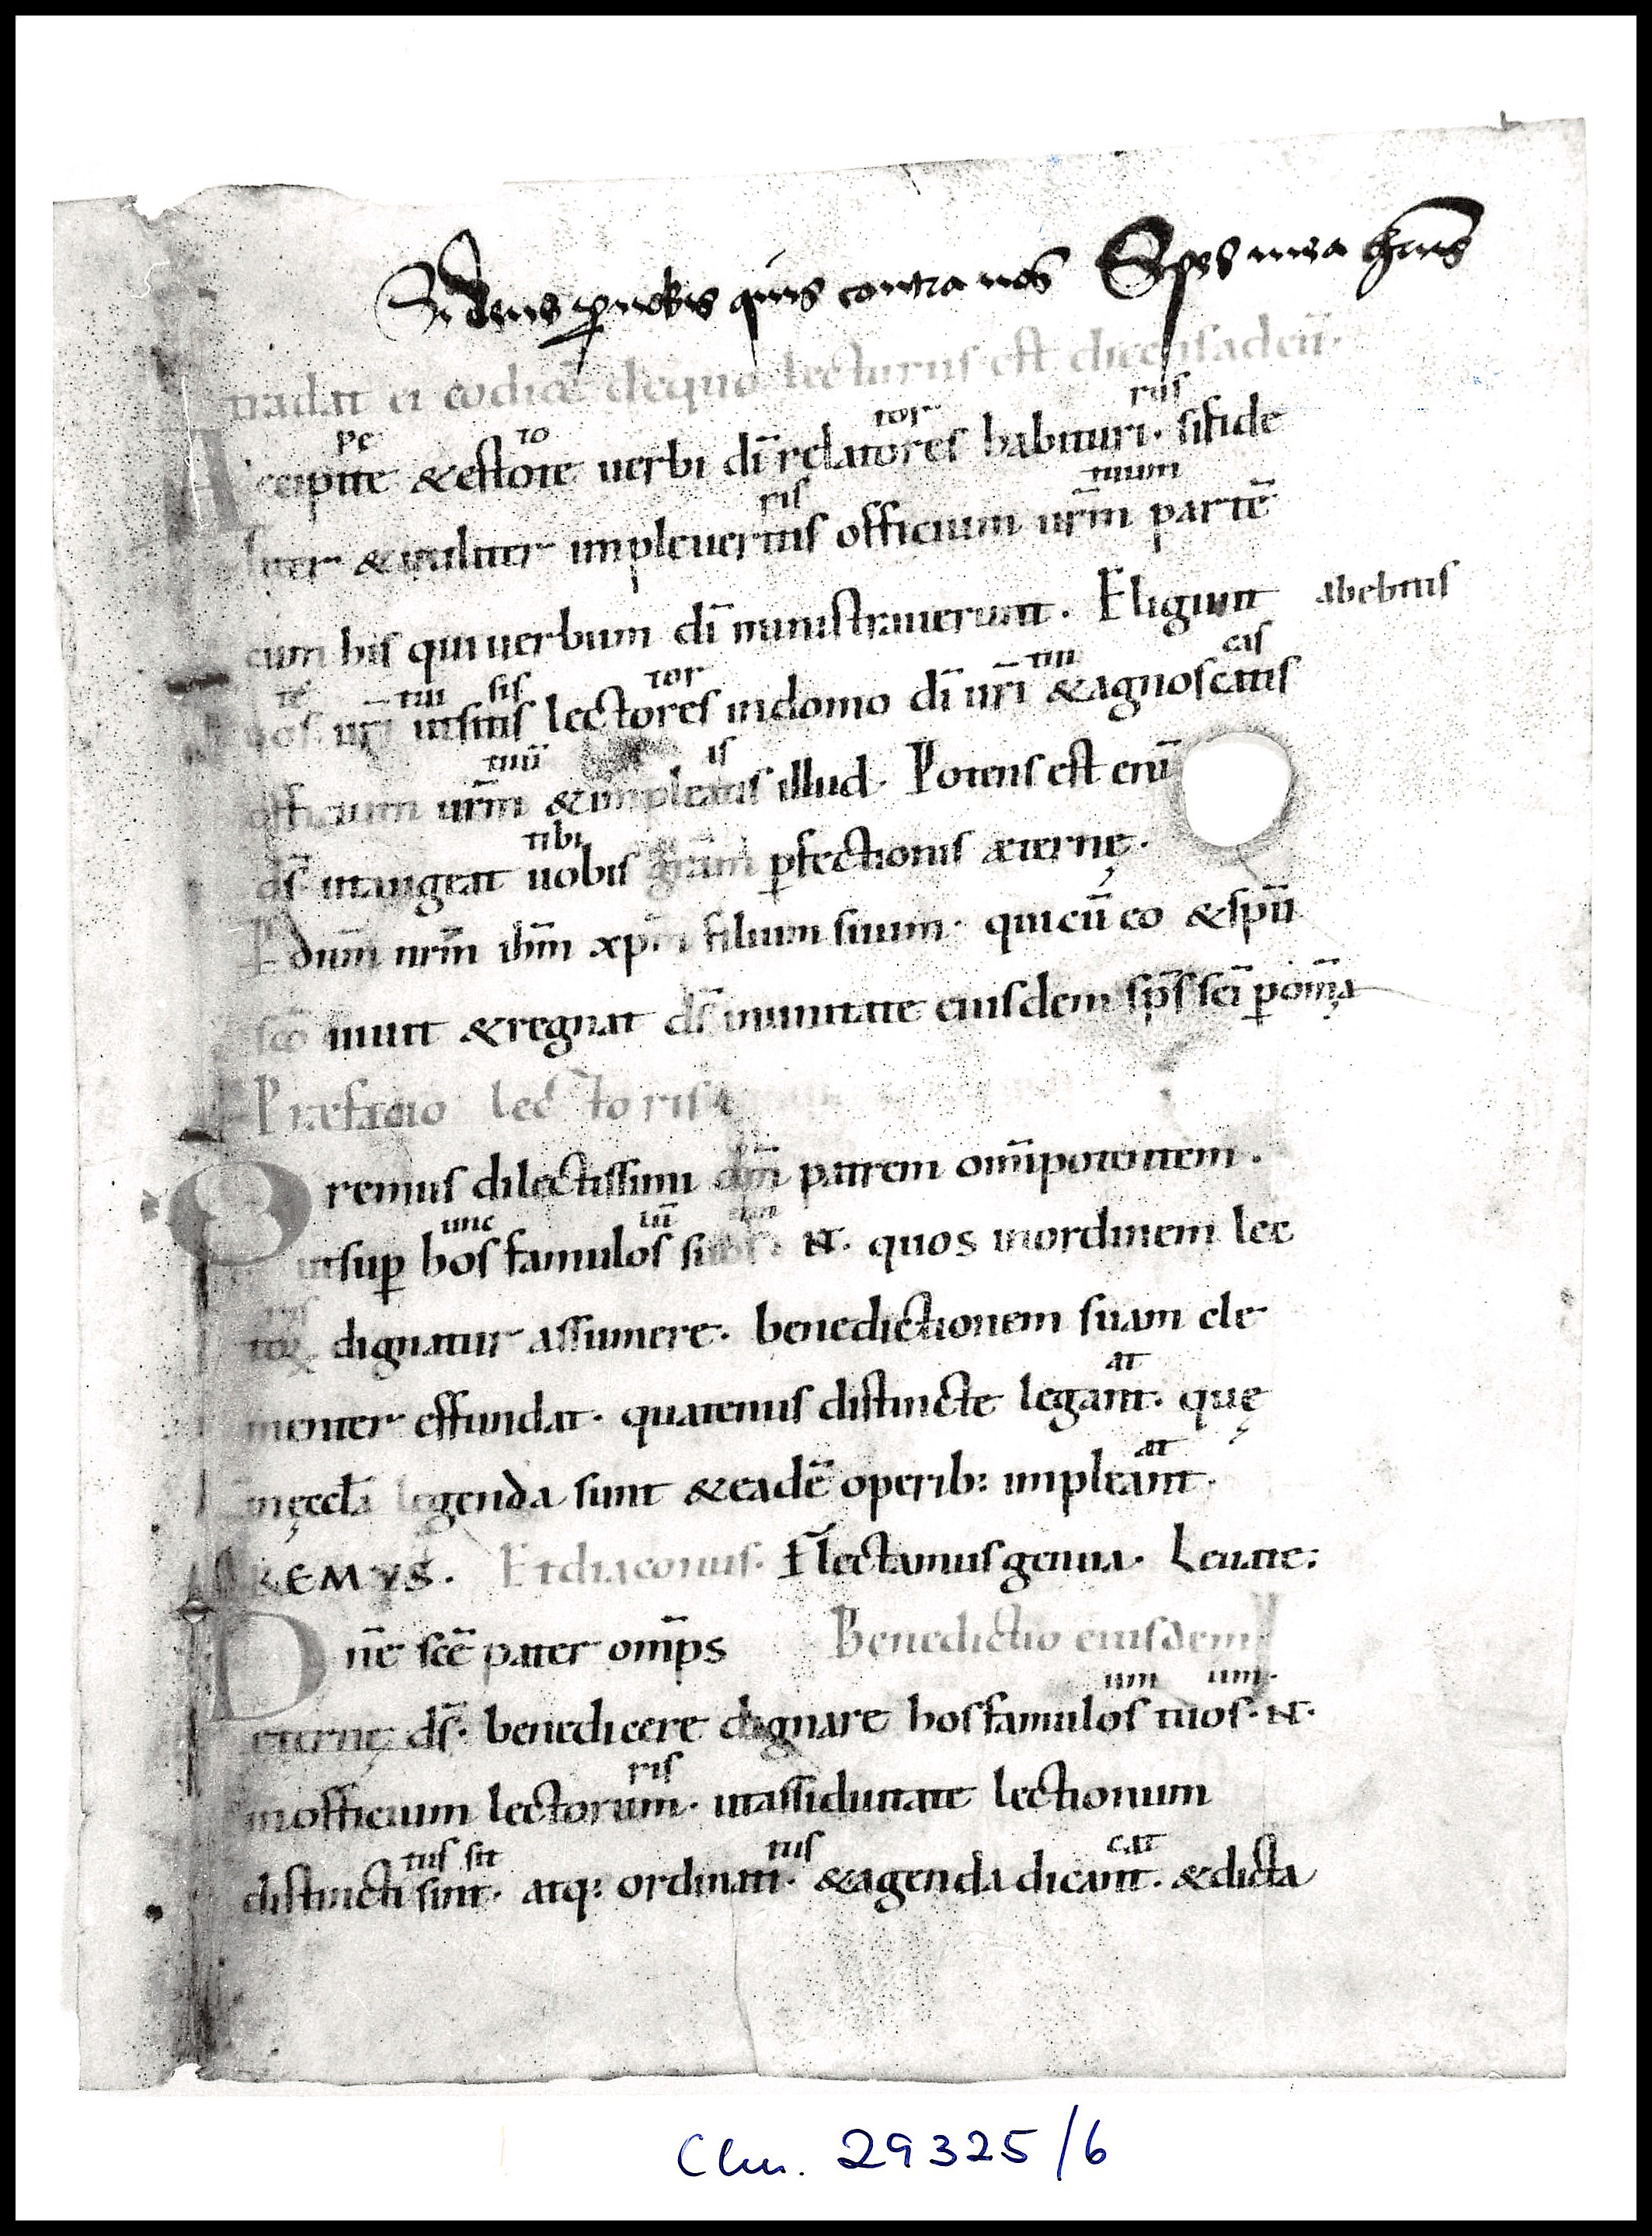 Si deus p̱ nobis quis contra nos Spes mea
tradat ei codicē dequo lecturus est dicens adeū·
pe to tor rus
Accipite & estote uerbi dī relatores habituri· si fide
ris tuum
liter & utiliter impleueritis officium ur̄m partē
cum his qui uerbum dī ministrauerunt. Eligunt abebitis
te tui sis tor tui cas
uos ur̄i utsitis lectores indomo dī ur̄i & agnoscatis
tuū as
officium ur̄m & impleatis illud· Potens est enī
tibi
d̄s utaugeat uobis gr̄am p̱fectionis æternę·
P dn̄m nr̄m ihm̄ xp̄m filium suum· qui cū eo & spū
sc̄o uiuit & regnat d̄s inunitate eiusdem sp̄s sc̄i p̱ om̄a
Præfacio lectoris
Oremus dilectissimi dm̄ patrem om̄ipotentem·
unc lū
utsup̱ hos famulos suos· N̄· quos inordinem lec
ris
toꝝ dignatur assumere· benedictionem suam cle
at
menter effundat· quatenus distincte legant· quę
at
inęccl̄a legenda sunt & eadē operib; impleant·
OREMVS. Et diaconus· Flectamus genua· Leuate;
Dn̄e sc̄e pater om̄ps Benedictio eiusdem
um uum·
eternę d̄s· benedicere dignare hos famulos tuos· N̄·
ris
inofficium lectorum· utassiduitate lectionum
tus sit tus cat
distincti sint· atq; ordinati· & agenda dicant· & dicta
Clm. 29325/6